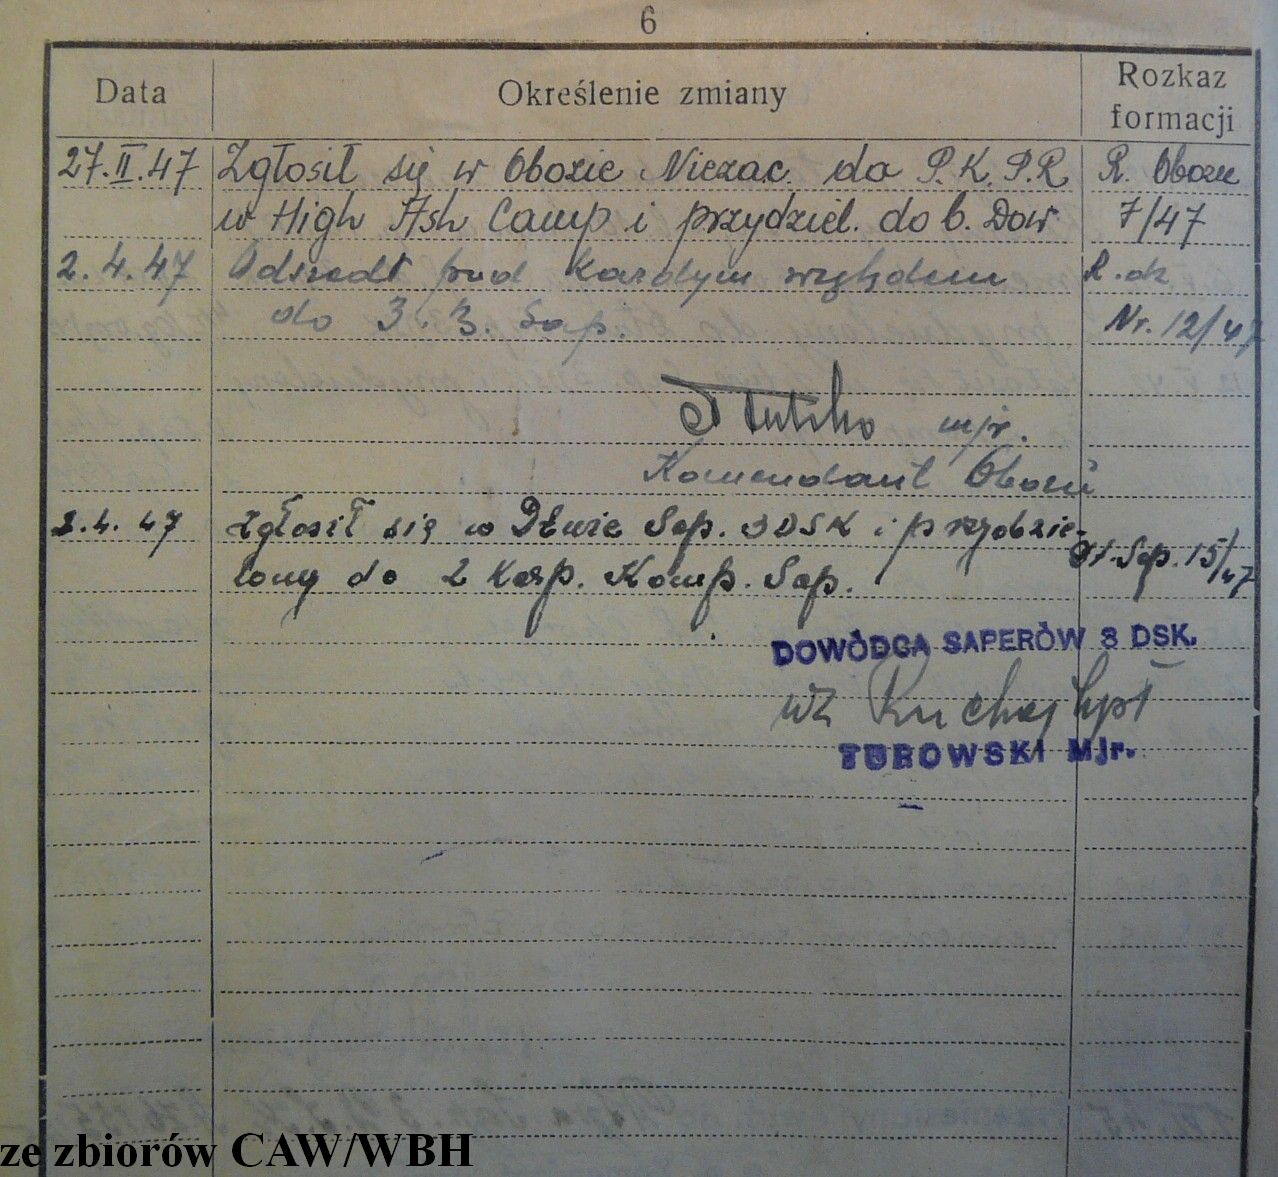 6
Data Określenie zmiany Rozkaz formacji
27.II.47 Zgłosił się w Obozie Niezac. do P.K.P.R R. Obozu
w High Ash Camp i przydziel. do b. Dow 7/47
2.4.47 Odszedł pod każdym względem R. dz
do 3. B. Sap. Nr. 12/47
mjr.
Komendant Obozu
2.4.47 Zgłosił się w Dtwie Sap. 3 DSK i przydzie-
lony do 2 Karp. Komp. Sap. Sap. 15/47
DOWÓDCA SAPERÓW 3 DSK.
wz
TUROWSKI Mjr.
ze zbiorów CAW/WBH